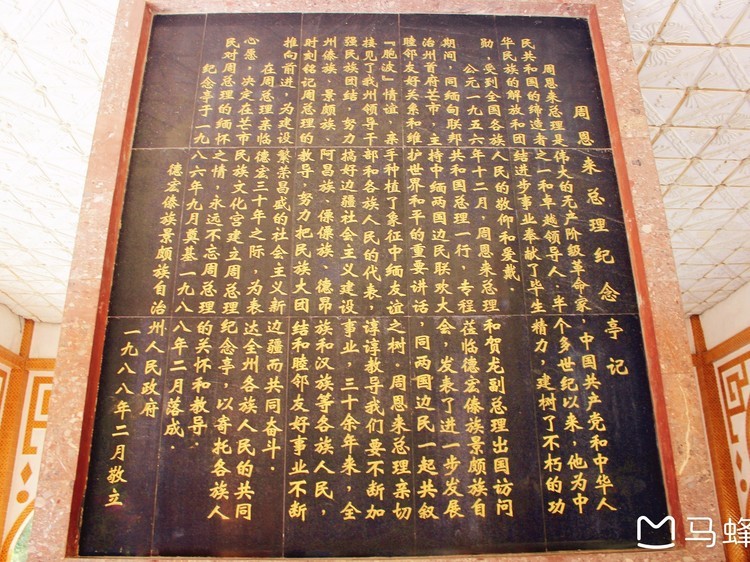 周恩来总理纪念亭记
周恩来总理是伟大的无产阶级革命家，中国共产党和中华人
民共和国的缔造者之一和卓越领导人。半个多世纪以来，他为中
华民族的解放和团结进步事业奉献了毕生精力，建树了不朽的功
勋，受到全国各族人民的敬仰和爱戴。
公元一九五六年十二月，周恩来总理和贺龙副总理出国访问
期间，同缅甸联邦共和国总理一行，专程莅临德宏傣族景颇族自
治州首府芒市，主持中缅两国边民联欢大会，发表了进一步发展
睦邻友好关系和维护世界和平的重要讲话，同两国边民一起共叙
『胞波』情谊，亲手种植了象征中缅友谊之树。周恩来总理亲切
接见了我州领导干部和各族人民的代表，谆谆教导我们要不断加
强民族团结，努力搞好边疆社会主义建设事业，三十余年来，全
州傣族、景颇族、阿昌族、傈僳族、德昂族和汉族等各族人民，
时刻铭记周总理的教导，努力把民族大团结和睦邻友好事业不断
推向前进，为建设繁荣昌盛的社会主义新边疆而共同奋斗。
在周总理亲临德宏三十年之际，为表达全州各族人民的共同
心愿，决定在芒市民族文化宫建立周总理纪念亭，以寄托各族人
民对周总理的缅怀之情，永远不忘周总理的关怀和教导。
纪念亭于一九八六年九月奠基一九八八年二月落成。
德宏傣族景颇族自治州人民政府
一九八八年二月敬立
马蜂